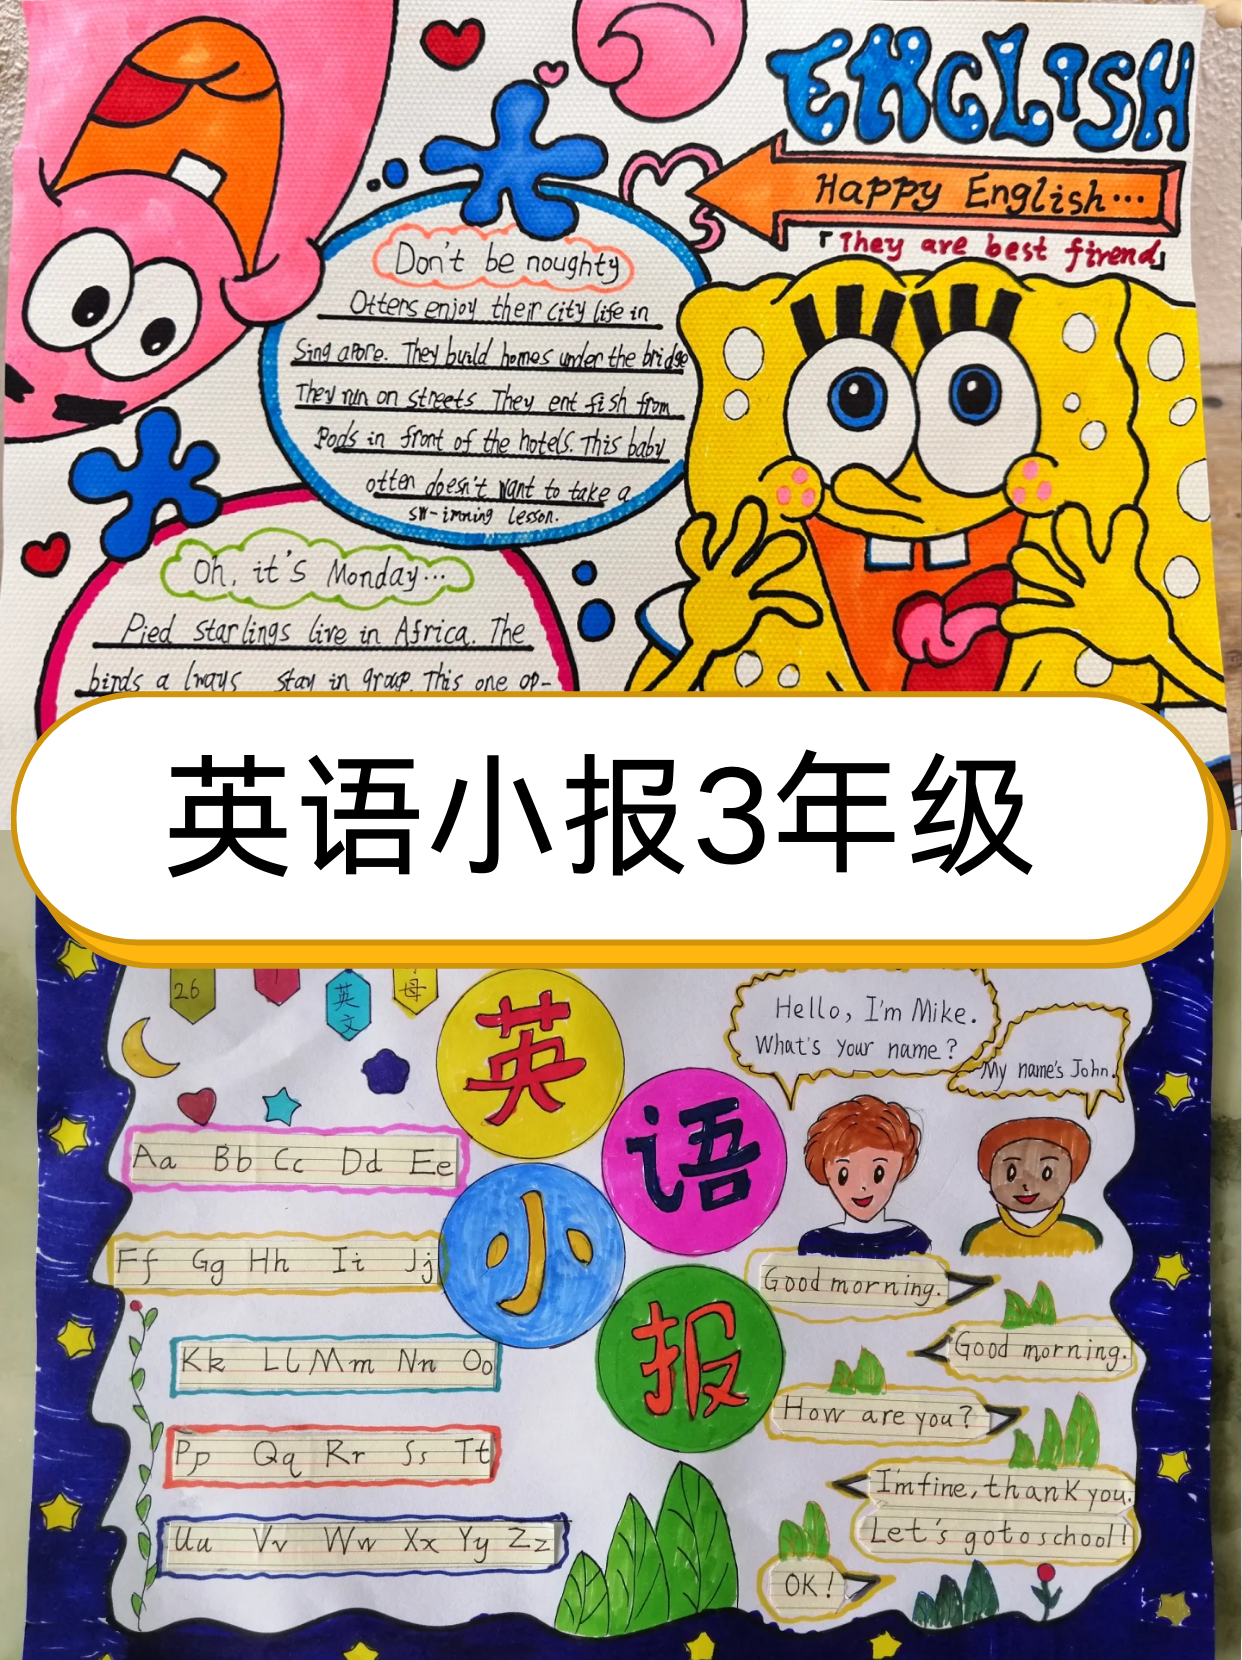 ENGLISH
Happy English...
「They are best firend」
Don't be noughty
Otters enjoy their city life in
Sing apore. They build homes under the bridge
They run on streets They ent fish from
Pods in front of the hotels. This baby
otten doesn't want to take a
sw-imning lesson.
Oh, it's Monday...
Pied starlings live in Africa. The
birds a lways stay in group. This one op-
英语小报3年级
26
英文
母
英语小报
Hello, I'm Mike.
What's your name?
My name's John.
Aa Bb Cc Dd Ee
Ff Gg Hh Ii Jj
Kk Ll Mm Nn Oo
Pp Qq Rr Ss Tt
Uu Vv Ww Xx Yy Zz
Good morning.
Good morning.
How are you?
I'm fine, thank you.
Let's go to school!
OK!